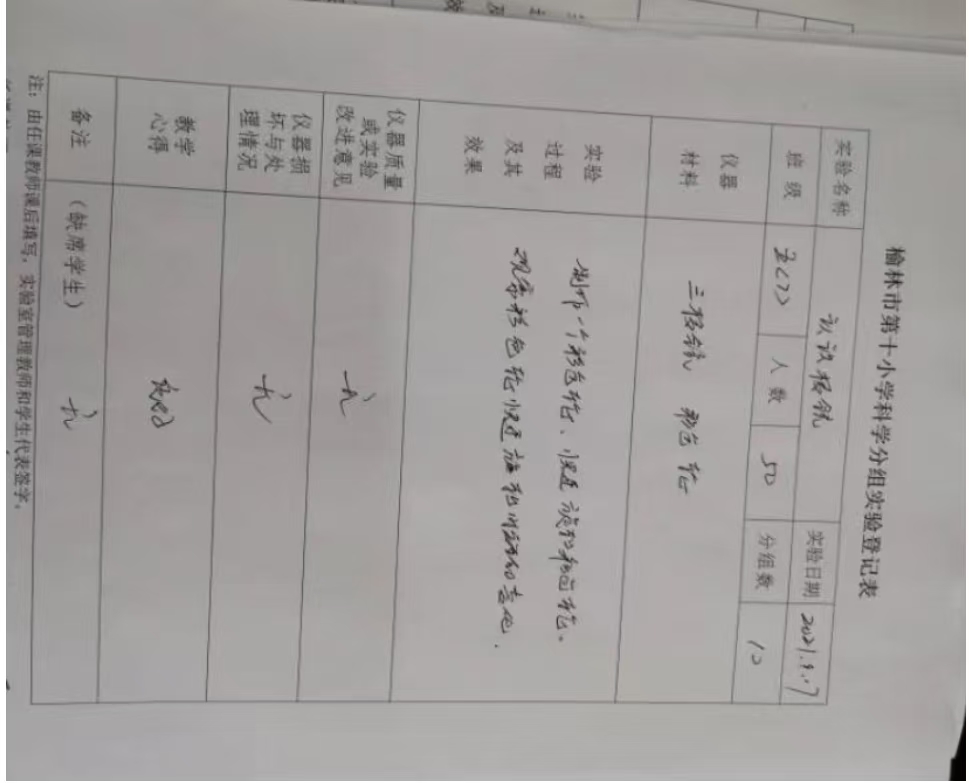 榆林市第十小学科学分组实验登记表
实验名称 认识棱镜 实验日期 2021.9.17
班级 五(7) 人数 50 分组数 10
仪器
材料
三棱镜 彩色轮
实验
过程
及其
效果
制作一个彩色轮、快速旋转彩色轮。
观察彩色轮快速旋转时
仪器质量
或实验
改进意见
无
仪器损
坏与处
理情况
无
教学
心得
备注 (缺席学生) 无
注：由任课教师课后填写，实验室管理教师和学生代表签字。